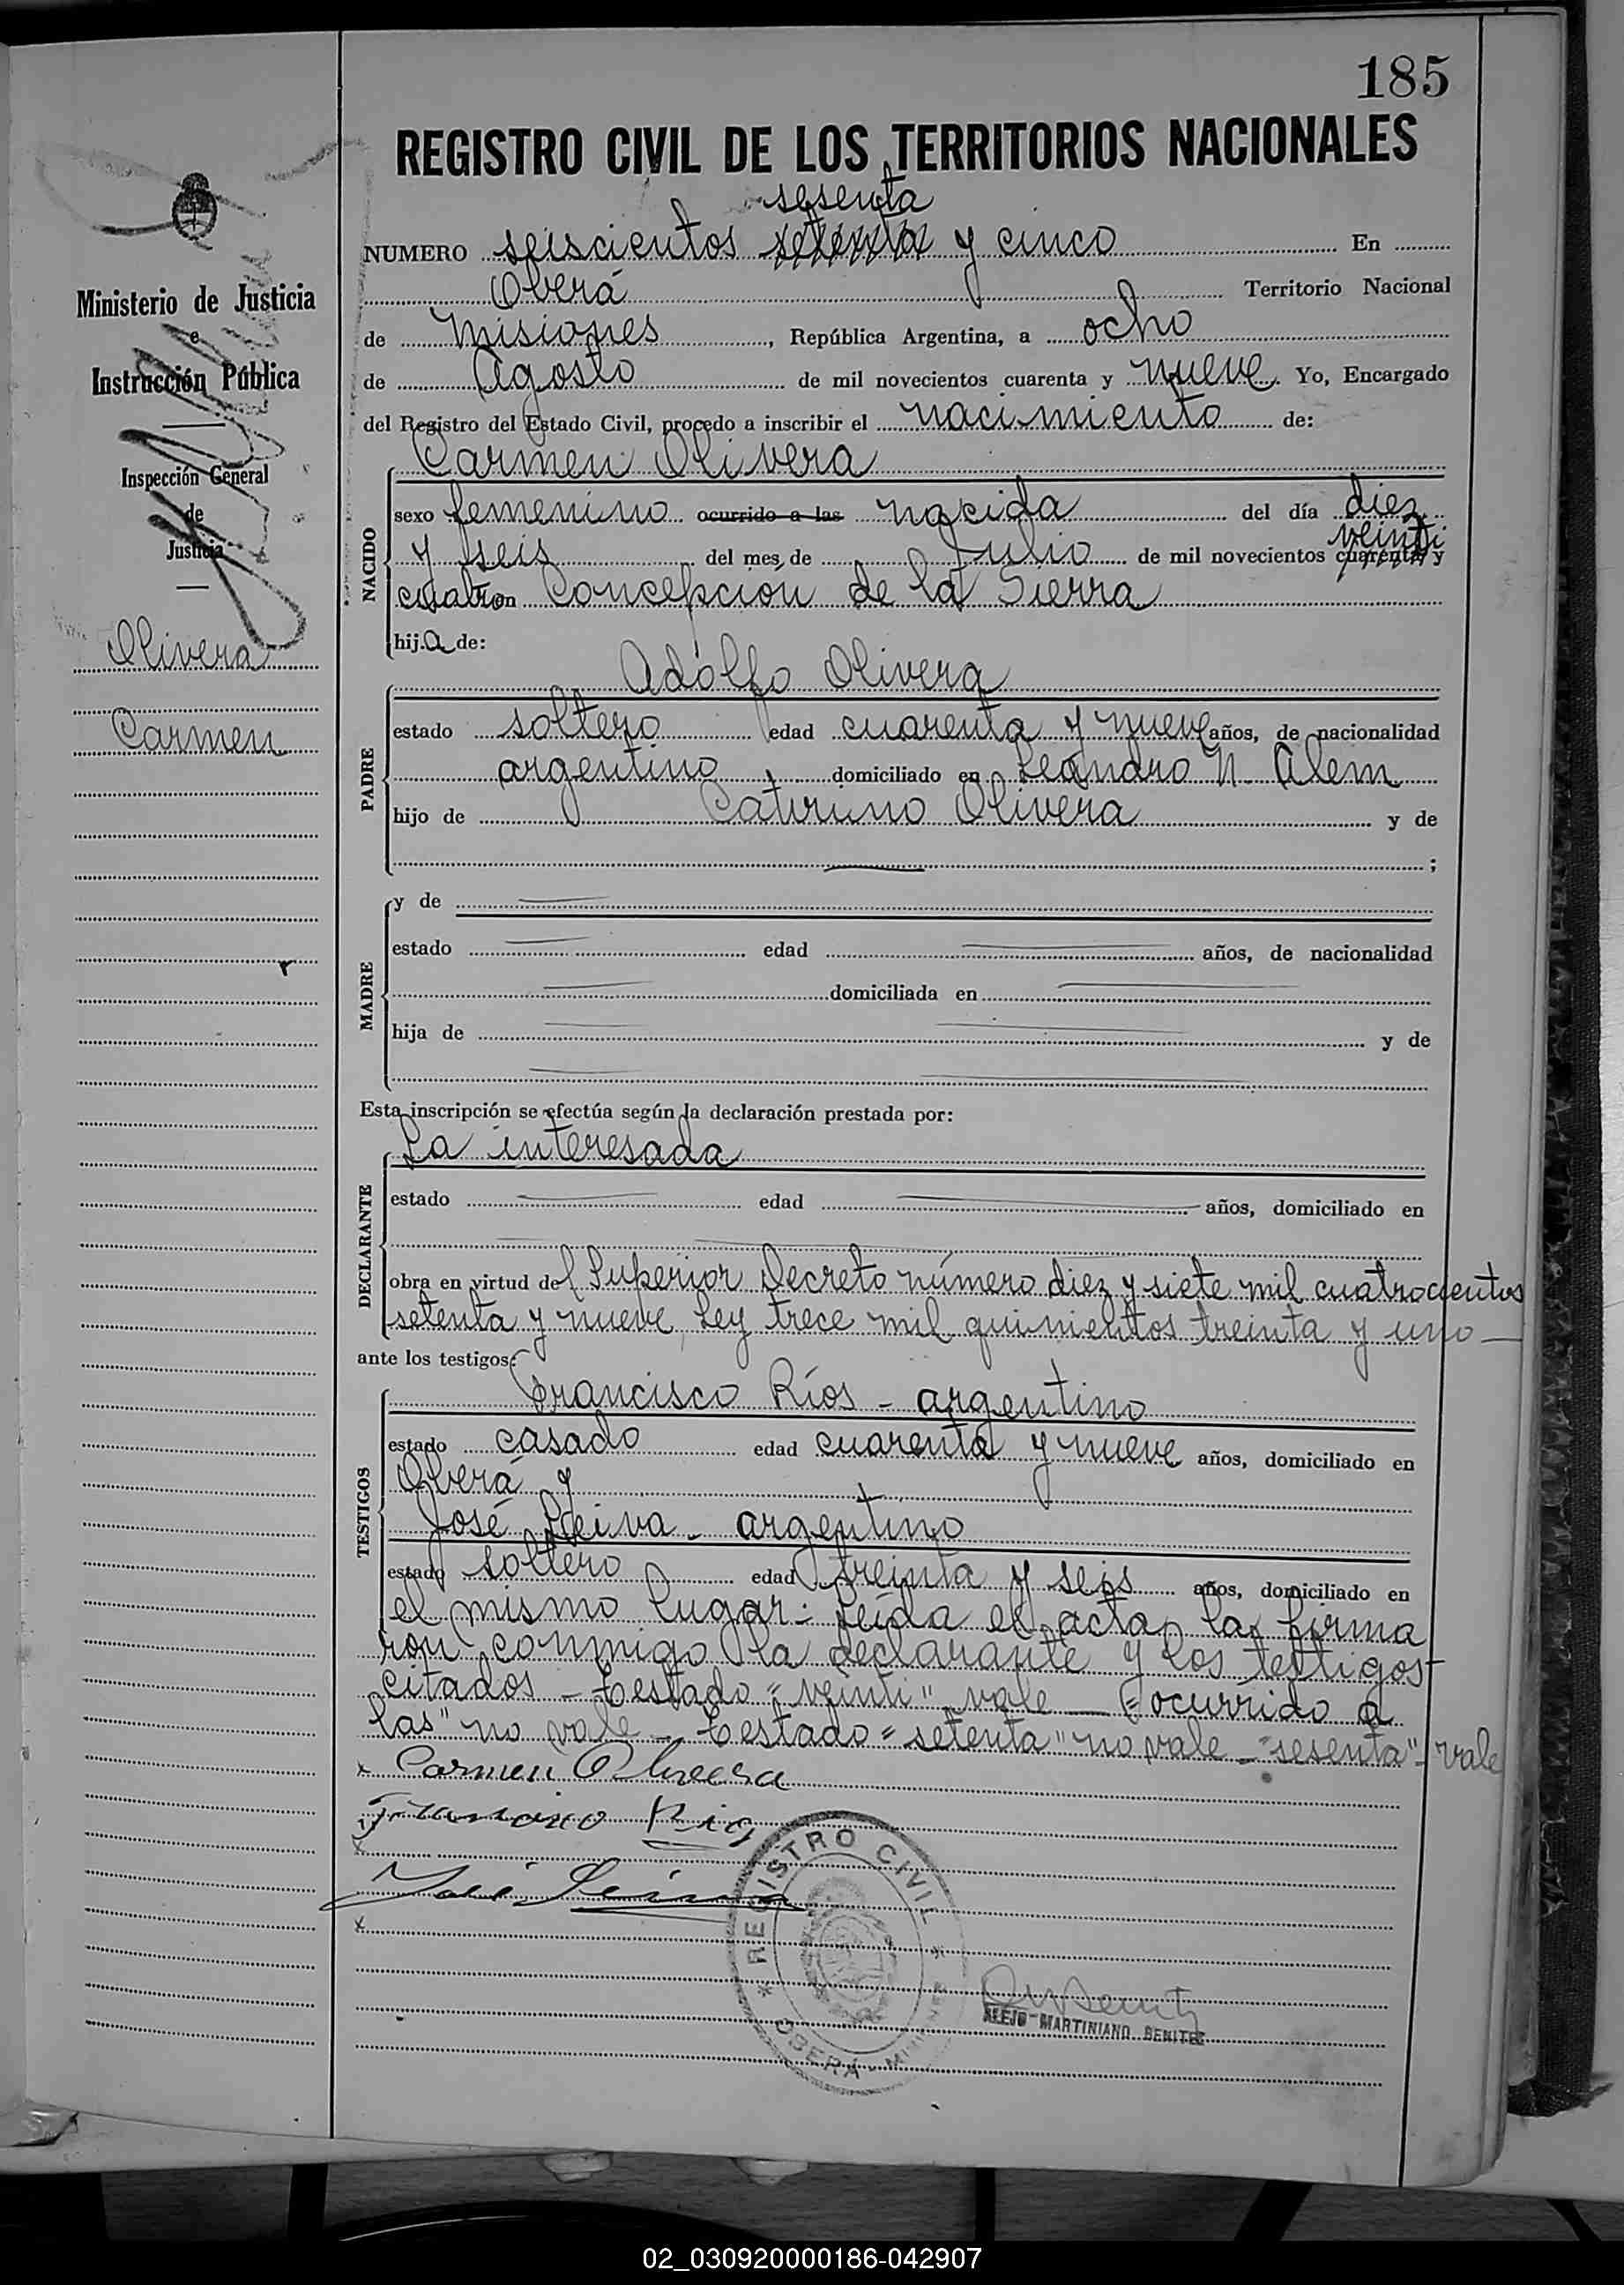 185
REGISTRO CIVIL DE LOS TERRITORIOS NACIONALES
sesenta
NUMERO seiscientos setenta y cinco En
Oberá Territorio Nacional
de Misiones, República Argentina, a ocho
de Agosto de mil novecientos cuarenta y nueve. Yo, Encargado
del Registro del Estado Civil, procedo a inscribir el nacimiento de:
Ministerio de Justicia
e
Instrucción Pública
Inspección General
de
Justicia
Olivera
Carmen
NACIDO
Carmen Olivera
sexo femenino ocurrido a las nacida del día diez
veinti
y seis del mes de Julio de mil novecientos cuarenta y
cuatro en Concepción de la Sierra
hija de:
PADRE
Adolfo Olivera
estado soltero edad cuarenta y nueve años, de nacionalidad
argentino domiciliado en Leandro N. Alem
hijo de Olivera y de
;
MADRE
y de
estado edad años, de nacionalidad
domiciliada en
hija de y de
Esta inscripción se efectúa según la declaración prestada por:
DECLARANTE
La interesada
estado edad años, domiciliado en
obra en virtud del Superior Decreto número diez y siete mil cuatrocientos
setenta y nueve, Ley trece mil quinientos treinta y uno —
ante los testigos:
TESTIGOS
Francisco Ríos - argentino
estado casado edad cuarenta y nueve años, domiciliado en
Oberá y
José Leiva - argentino
estado soltero edad treinta y seis años, domiciliado en
el mismo lugar: Leída el acta, la firma
ron conmigo la declarante y los testigos
citados - Testado "veinti" vale — "ocurrido a
las" no vale - Testado = setenta" no vale - "sesenta" - vale
x Carmen Olivera
Francisco Rios
x
José Leiva
x
* REGISTRO CIVIL *
OBERÁ - MISIONES
ALEJO MARTINIANO BENITEZ
02_030920000186-042907